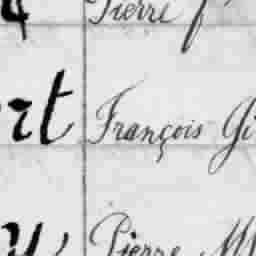 Pierre
rt François Gi
y Pierre M